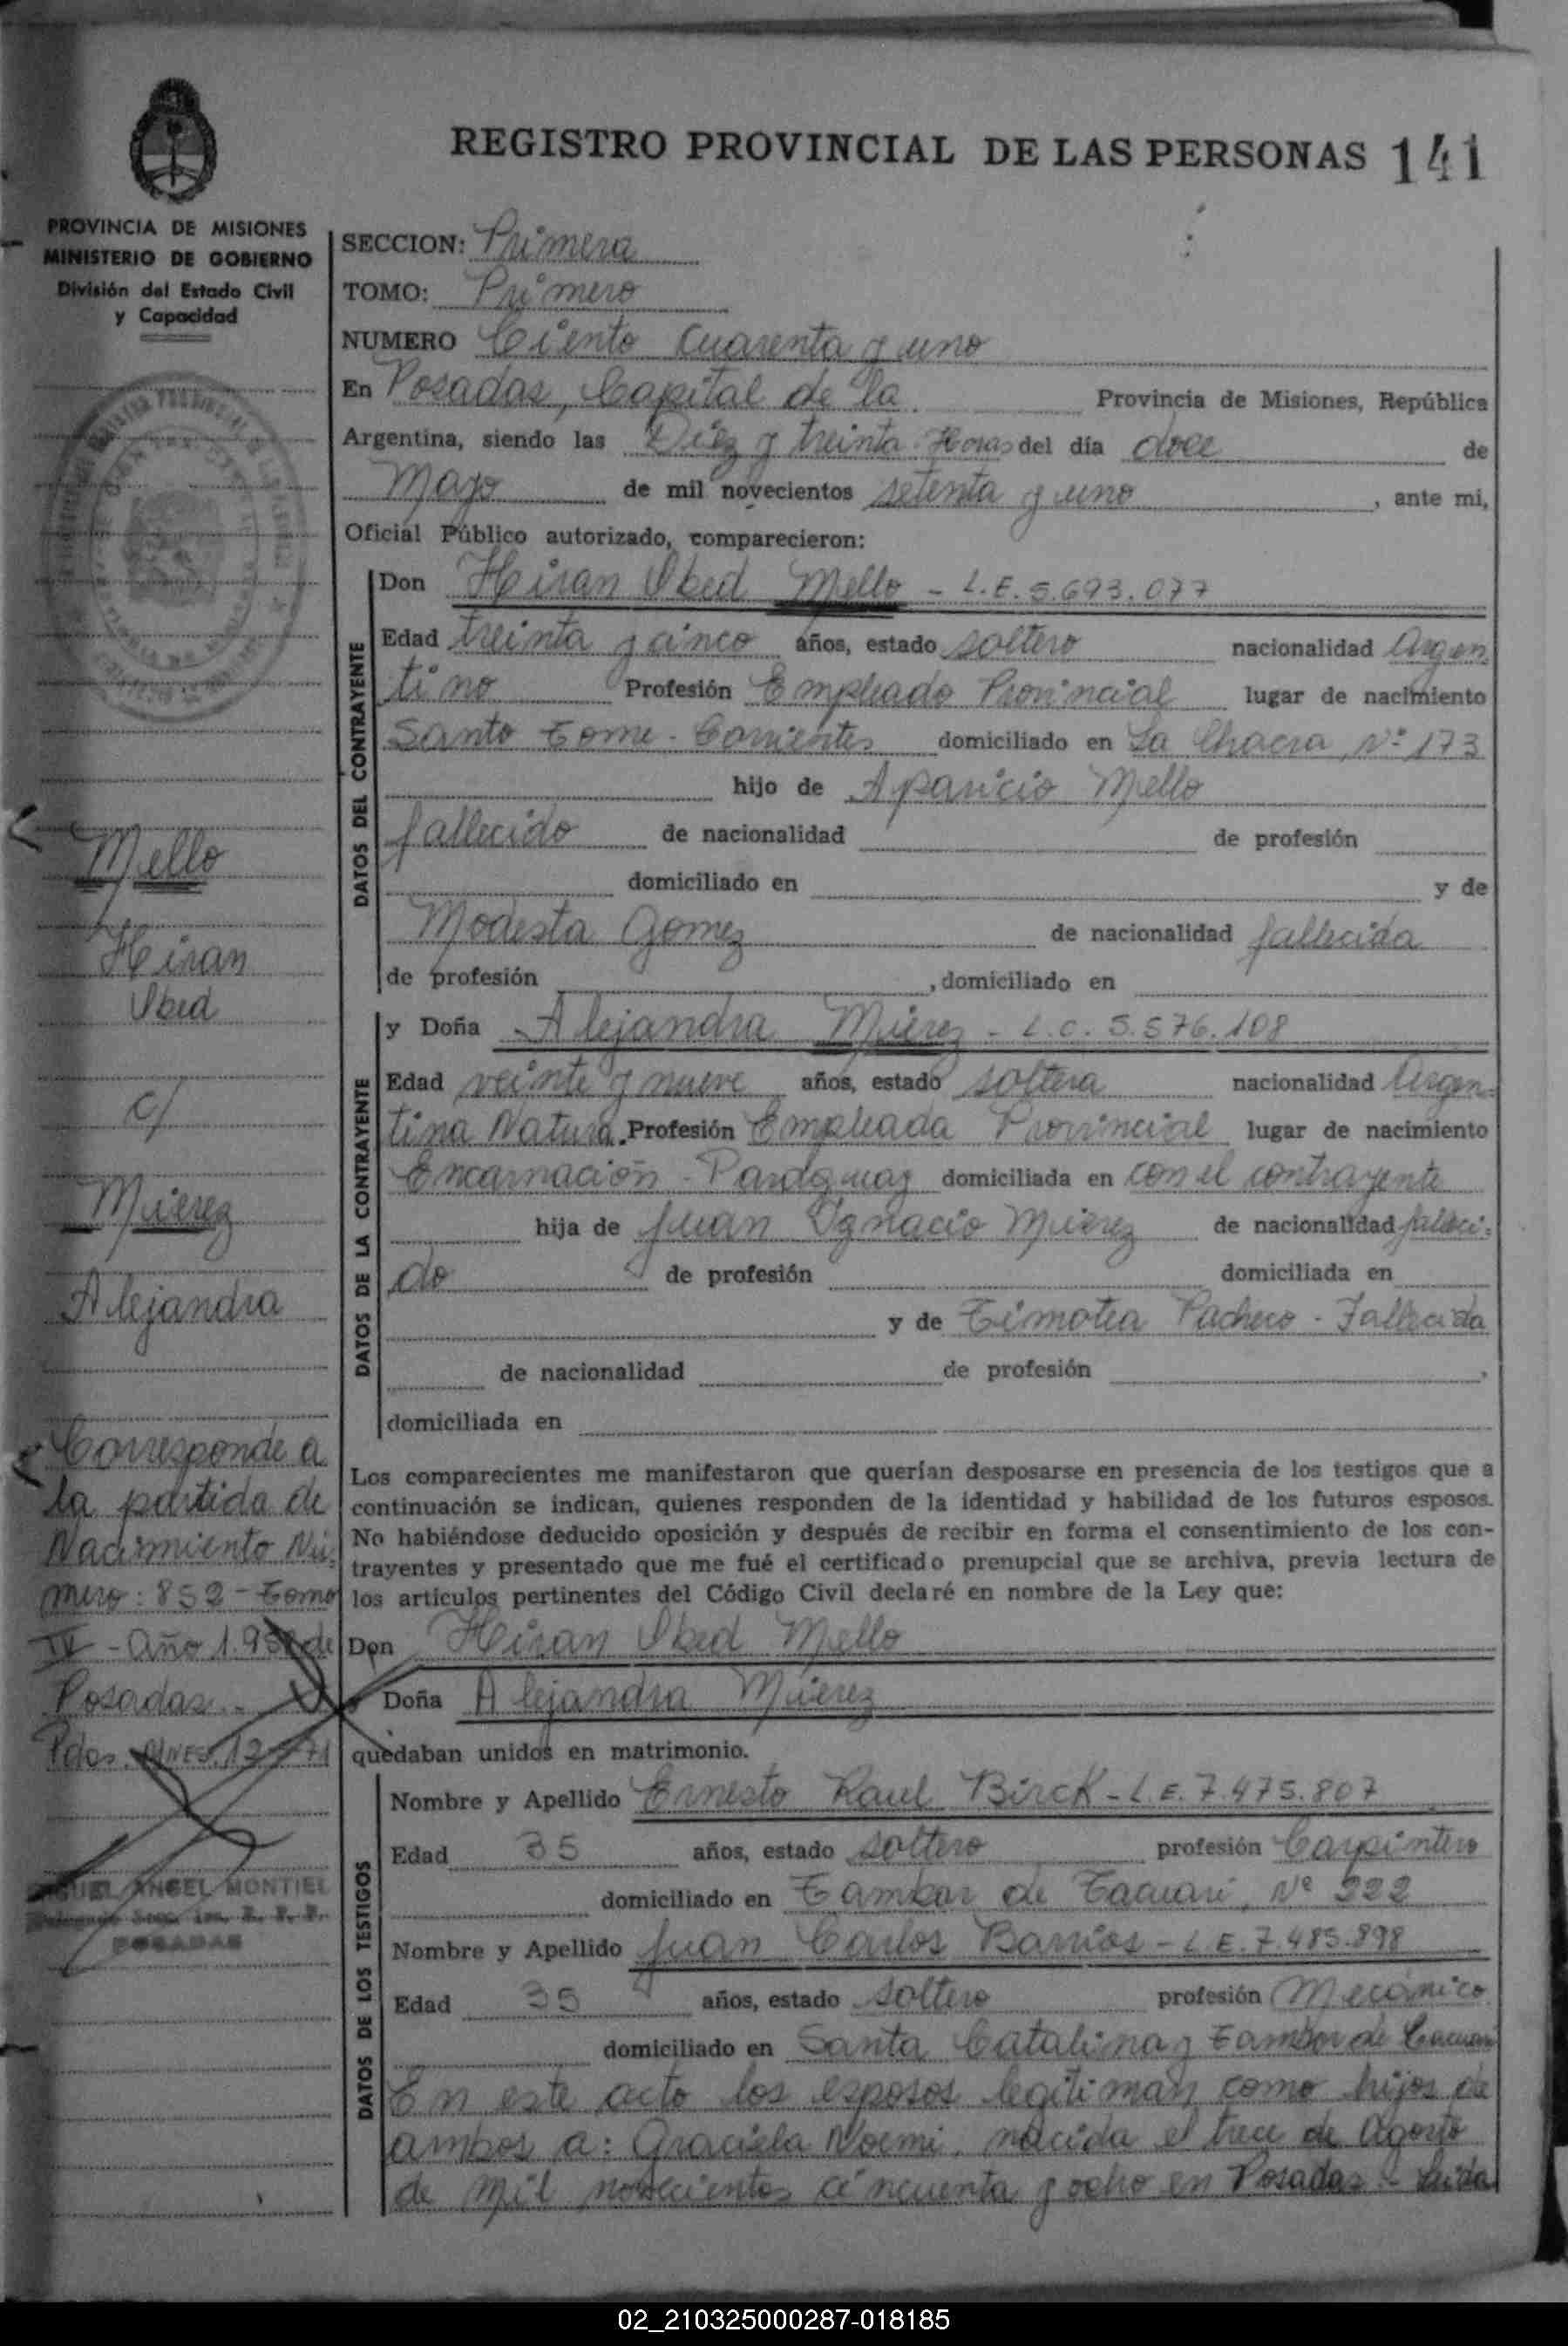 REGISTRO PROVINCIAL DE LAS PERSONAS 141
PROVINCIA DE MISIONES
MINISTERIO DE GOBIERNO
División del Estado Civil
y Capacidad
SECCION: Primera
TOMO: Primero
NUMERO Ciento Cuarenta y uno
En Posadas, Capital de la Provincia de Misiones, República
Argentina, siendo las Diez y treinta Horas del día doce de
Mayo de mil novecientos setenta y uno, ante mi,
Oficial Público autorizado, comparecieron:
DATOS DEL CONTRAYENTE
Don Hiran Obed Mello - L.E. 5.693.077
Edad treinta y cinco años, estado soltero nacionalidad Argen
tino Profesión Empleado Provincial lugar de nacimiento
Santo Tome - Corrientes domiciliado en La Chacra Nº 173
hijo de Aparicio Mello
fallecido de nacionalidad de profesión
domiciliado en y de
Modesta Gomez de nacionalidad fallecida
de profesión , domiciliado en
DATOS DE LA CONTRAYENTE
y Doña Alejandra Mierez - L.C. 5.576.108
Edad veinte y nueve años, estado soltera nacionalidad Argen-
tina Natura. Profesión Empleada Provincial lugar de nacimiento
Encarnación - Paraguay domiciliada en con el contrayente
hija de Juan Ignacio Mierez de nacionalidad falleci-
do de profesión domiciliada en
y de Timotea Pacheco - Fallecida
de nacionalidad de profesión ,
domiciliada en
Los comparecientes me manifestaron que querían desposarse en presencia de los testigos que a
continuación se indican, quienes responden de la identidad y habilidad de los futuros esposos.
No habiéndose deducido oposición y después de recibir en forma el consentimiento de los con-
trayentes y presentado que me fué el certificado prenupcial que se archiva, previa lectura de
los artículos pertinentes del Código Civil declaré en nombre de la Ley que:
Don Hiran Obed Mello
Doña Alejandra Mierez
quedaban unidos en matrimonio.
DATOS DE LOS TESTIGOS
Nombre y Apellido Ernesto Raul Birck - L.E. 7.475.807
Edad 35 años, estado soltero profesión Carpintero
domiciliado en Tambor de Tacuarí, Nº 222
Nombre y Apellido Juan Carlos Barrios - L.E. 7.485.898
Edad 35 años, estado soltero profesión Mecánico
domiciliado en Santa Catalina y Tambor de Tacuari
En este acto los esposos legitiman como hijos de
ambos a: Graciela Noemi, nacida el trece de Agosto
de mil novecientos cincuenta y ocho en Posadas - Leida
Mello
Hiran
Obed
c/
Mierez
Alejandra
Corresponde a
la partida de
Nacimiento Nú-
mero: 852 - Tomo
IV - Año 1.958 de
Posadas.-
Pdas.
ANGEL MONTIEL
POSADAS
02_210325000287-018185